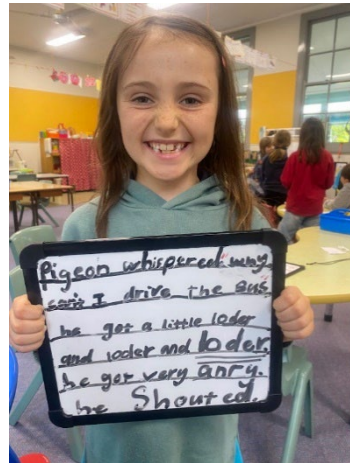 Pigeon whispered why
can't I drive the bus
he got a little loder
and loder and loder.
he got very anry.
he Shouted.